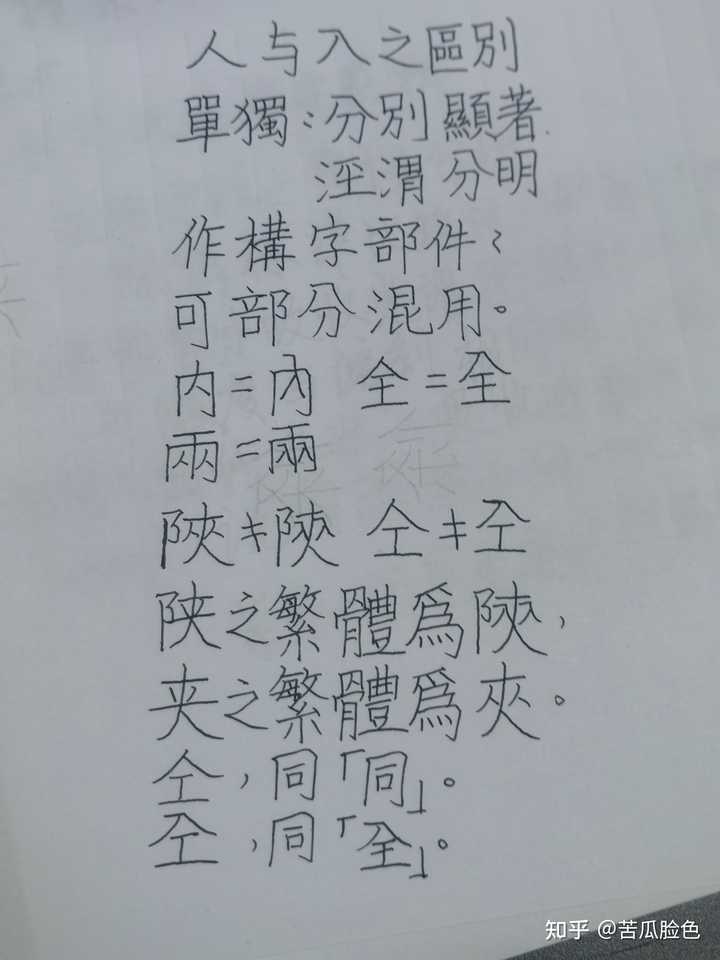 人与入之區別
單獨：分別顯著.
涇渭分明
作構字部件：
可部分混用。
内=內 全=全
兩=兩
陝≠陜 仝≠㒰
陕之繁體為陝，
夹之繁體為夾。
仝，同「同」。
㒰，同「全」。
知乎 @苦瓜脸色